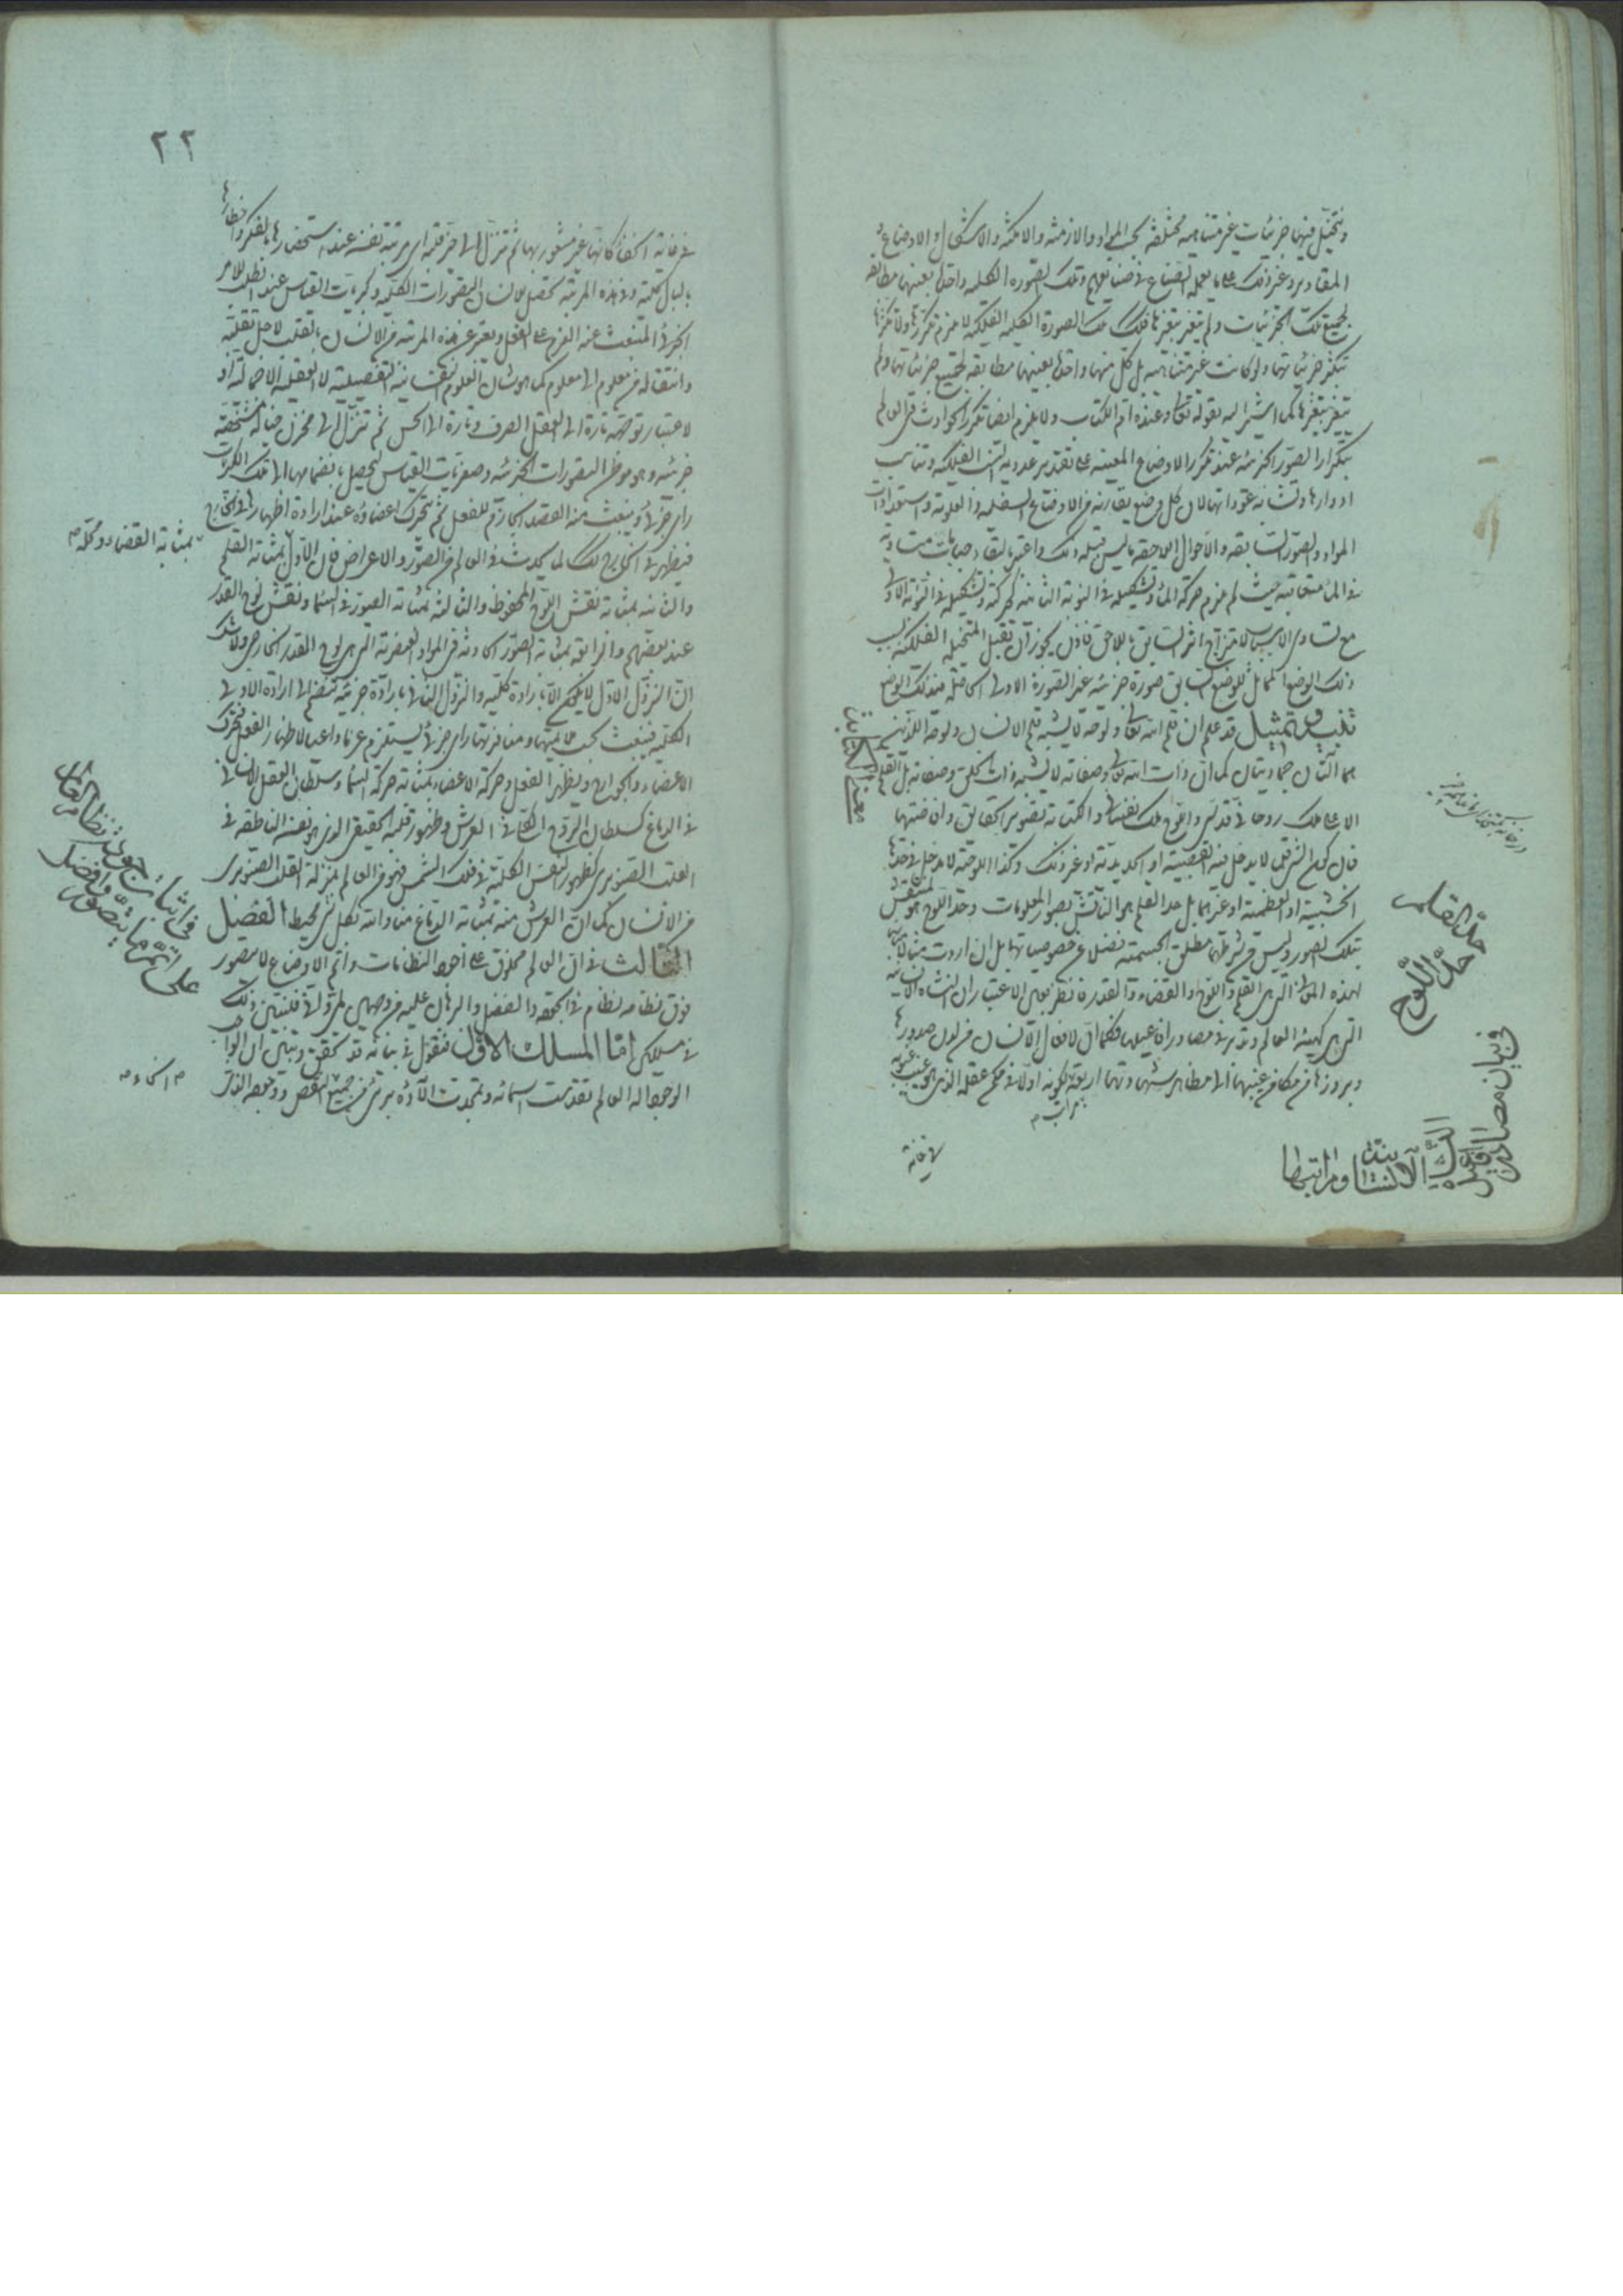 ويتخيل فيها جزئيات غير متناهية مختلفة بحسب المواد والازمنة والامكنة والاشكال والاوضاع و
المقادير وغير ذلك على ما يعمله الصناع في صنايعهم وتلك الصورة الكلية واحدة بعينها مطابقة
لجميع تلك الجزئيات ولم يتغير بتغيرها فكذلك الصورة الكلية الفلكية لا يلزم تكررها ولا تكثرها
بتكثر جزئياتها ولو كانت غير متناهية بل كل منها واحدة بعينها مطابقة لجميع جزئياتها ولم
يتغير بتغيرها كما اشير اليه بقوله تعالى وعنده ام الكتاب ولا يلزم ايضا تكرر الحوادث في العالم
بتكرار الصور الجزئية عند تكرر الاوضاع المعينة على تقدير عددية النسب الفلكية وتناسب
ادوارها وتشابه عوداتها لان كل وضع يقارنه من الاوضاع السفلية والعلوية واستعدادات
المواد والصور السابقة والاحوال اللاحقة ما ليس قبله
مع تساوي الاسباب لامتزاج اثر السابق باللاحق فاذن يجوز ان تقبل المتخيلة الفلكية بسبب
ذلك الوضع المماثل للوضع السابق صورة جزئية غير الصورة الاولى الحاصلة عند ذلك الوضع
تذنيب وتمثيل قد علم ان قلم الله تعالى ولوحه لا يشبه قلم الانسان ولوحه اللذين
هما آلتان جماديتان كما ان ذات الله تعالى وصفاته لا يشبه ذات الخلق وصفاته بل القلم
الاعلى ملك روحاني قدسي واللوح ملك نفساني والكتابة تصوير الحقايق وافاضتها
فان كون الشيء قلما لا يدخل فيه القصبية او الحديدية او غير ذلك وكذا اللوحية لا يدخل في حدها
الخشبية او العظمية او غيرهما بل حد القلم هو الناقش بصور المعلومات وحد اللوح هو المنتقش
بتلك الصور وليس من شرطهما مطلق الجسمية فضلا عن خصوصياتها بل ان اردت مثالا
لهذه المواطن التي هي القلم واللوح والقضاء والقدر فانظر بعين الاعتبار الى النشأة الانسانية
التي هي كهيئة العالم وتدبر في مصادر افاعيلها فكما ان لافعال الانسان من لدن صدورها
وبروزها من مكامن غيبها الى مظاهر شهادتها اربعة لكونه اولا في مكمن عقله الذي هو غيب غيوبه
مراتب م
في خانة
معنى الكتابة
حد القلم
حد اللوح
في بيان مصادر
افاعيل
النشأة
الانسانية ومراتبها
٢٢
في غاية الخفا كانها غير مشعور بها ثم تنزل الى حيز قلبه اى مرتبة نفسه عند استحضارها بالفكر واخطارها
بالبال كلية وفي هذه المرتبة تحصل للانسان التصورات الكلية وكبريات القياس عند الطلب للامر
الجزئي المنبعث عنه العزم على الفعل ويعبر عن هذه المرتبة من الانسان بالقلب لاجل تقلبه
وانتقاله من معلوم الى معلوم كما هو شان العلوم النفسانية التفصيلية لا العقلية الاجمالية او
لاعتبار توجهه تارة الى العقل الصرف وتارة الى الحس ثم تنزل الى مخزن خياله متشخصة
جزئية وهو موطن التصورات الجزئية وصغريات القياس ليحصل بانضمامها الى تلك الكبريات
راي جزئي وينبعث منه القصد الجازم للفعل ثم يتحرك اعضاؤه عند ارادة اظهاره الى الخارج
فيظهر في الخارج كذلك لما يحدث في العالم من الصور والاعراض فان الاول بمثابة القلم
والثانية بمثابة نقش اللوح المحفوظ والثالثة بمثابة الصور في السماء ونقش لوح القدر
عند بعضهم والرابعة بمثابة الصور الحادثة في المواد العنصرية التي هي لوح القدر الخارجي ولا شك
ان النزول الاول لا يكون الا بارادة كلية والنزول الثاني بارادة جزئية تنضم الى ارادة الاولى
الكلية فينبعث بحسب ملايمتها ومنافرتها راي جزئي يستلزم عزما داعيا لاظهار الفعل فيتحرك
الاعضاء والجوارح ويظهر الفعل وحركة الاعضاء بمثابة حركة السماء وسلطان العقل الانساني
في الدماغ كسلطان الروح الكلي في العرش وظهور قلبه الحقيقي الذي هو نفسه الناطقة في
القلب الصنوبري كظهور النفس الكلية في فلك الشمس فهو من العالم بمنزلة القلب الصنوبري
من الانسان كما ان العرش منه بمثابة الدماغ منا والله بكل شيء محيط الفصل
الثالث في ان العالم مخلوق على اجود النظامات واتم الاوضاع لا يتصور
فوق نظامه نظام في الجودة والفضل والبرهان عليه من وجهين فلنبين ذلك
في مسلكين اما المسلك الاول فنقول في بيانه قد تحقق وتبين ان الواجب
الوجود اله العالم تقدست اسماؤه وتمجدت آلاؤه بريء من جميع النقص ووجوده الذي
بمثابة القضاء ومحله م
في اثبات جودة نظام العالم
على اتم ما يتصور وافضل
م انحاء م